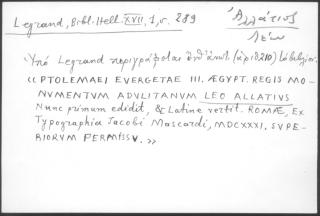 Legrand, Bibl. Hell. XVII, 1, σ. 289
Ἀλλάτιος
Λέων
Ὑπὸ Legrand περιγράφεται (ἀριθ 210)
« PTOLEMAEI EVERGETAE III. ÆGYPT. REGIS MO-
NVMENTVM ADVLITANVM LEO ALLATIVS
Nunc primum edidit, & Latine vertit. ROMÆ, Ex
Typographia Jacobi Mascardi, MDCXXXI. SVPE-
RIORVM PERMISSV. »